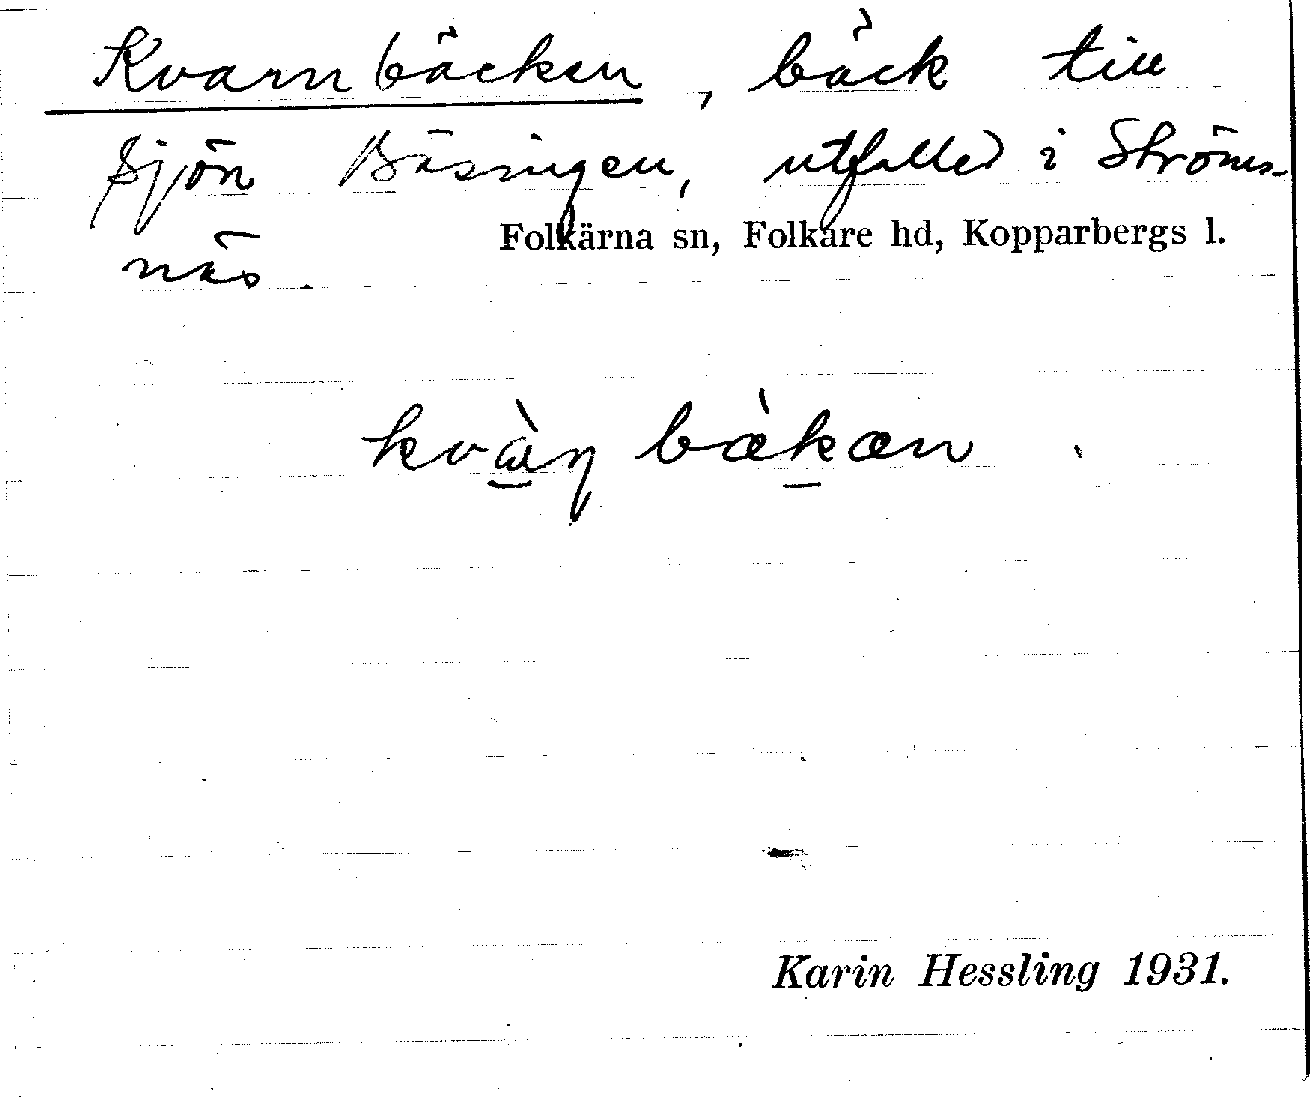 Kvarnbäcken, bäck till
sjön Bäsingen, utfaller i Ströms-
näs.
Folkärna sn, Folkare hd, Kopparbergs l.
kvàɳ bæ̀kæn
Karin Hessling 1931.